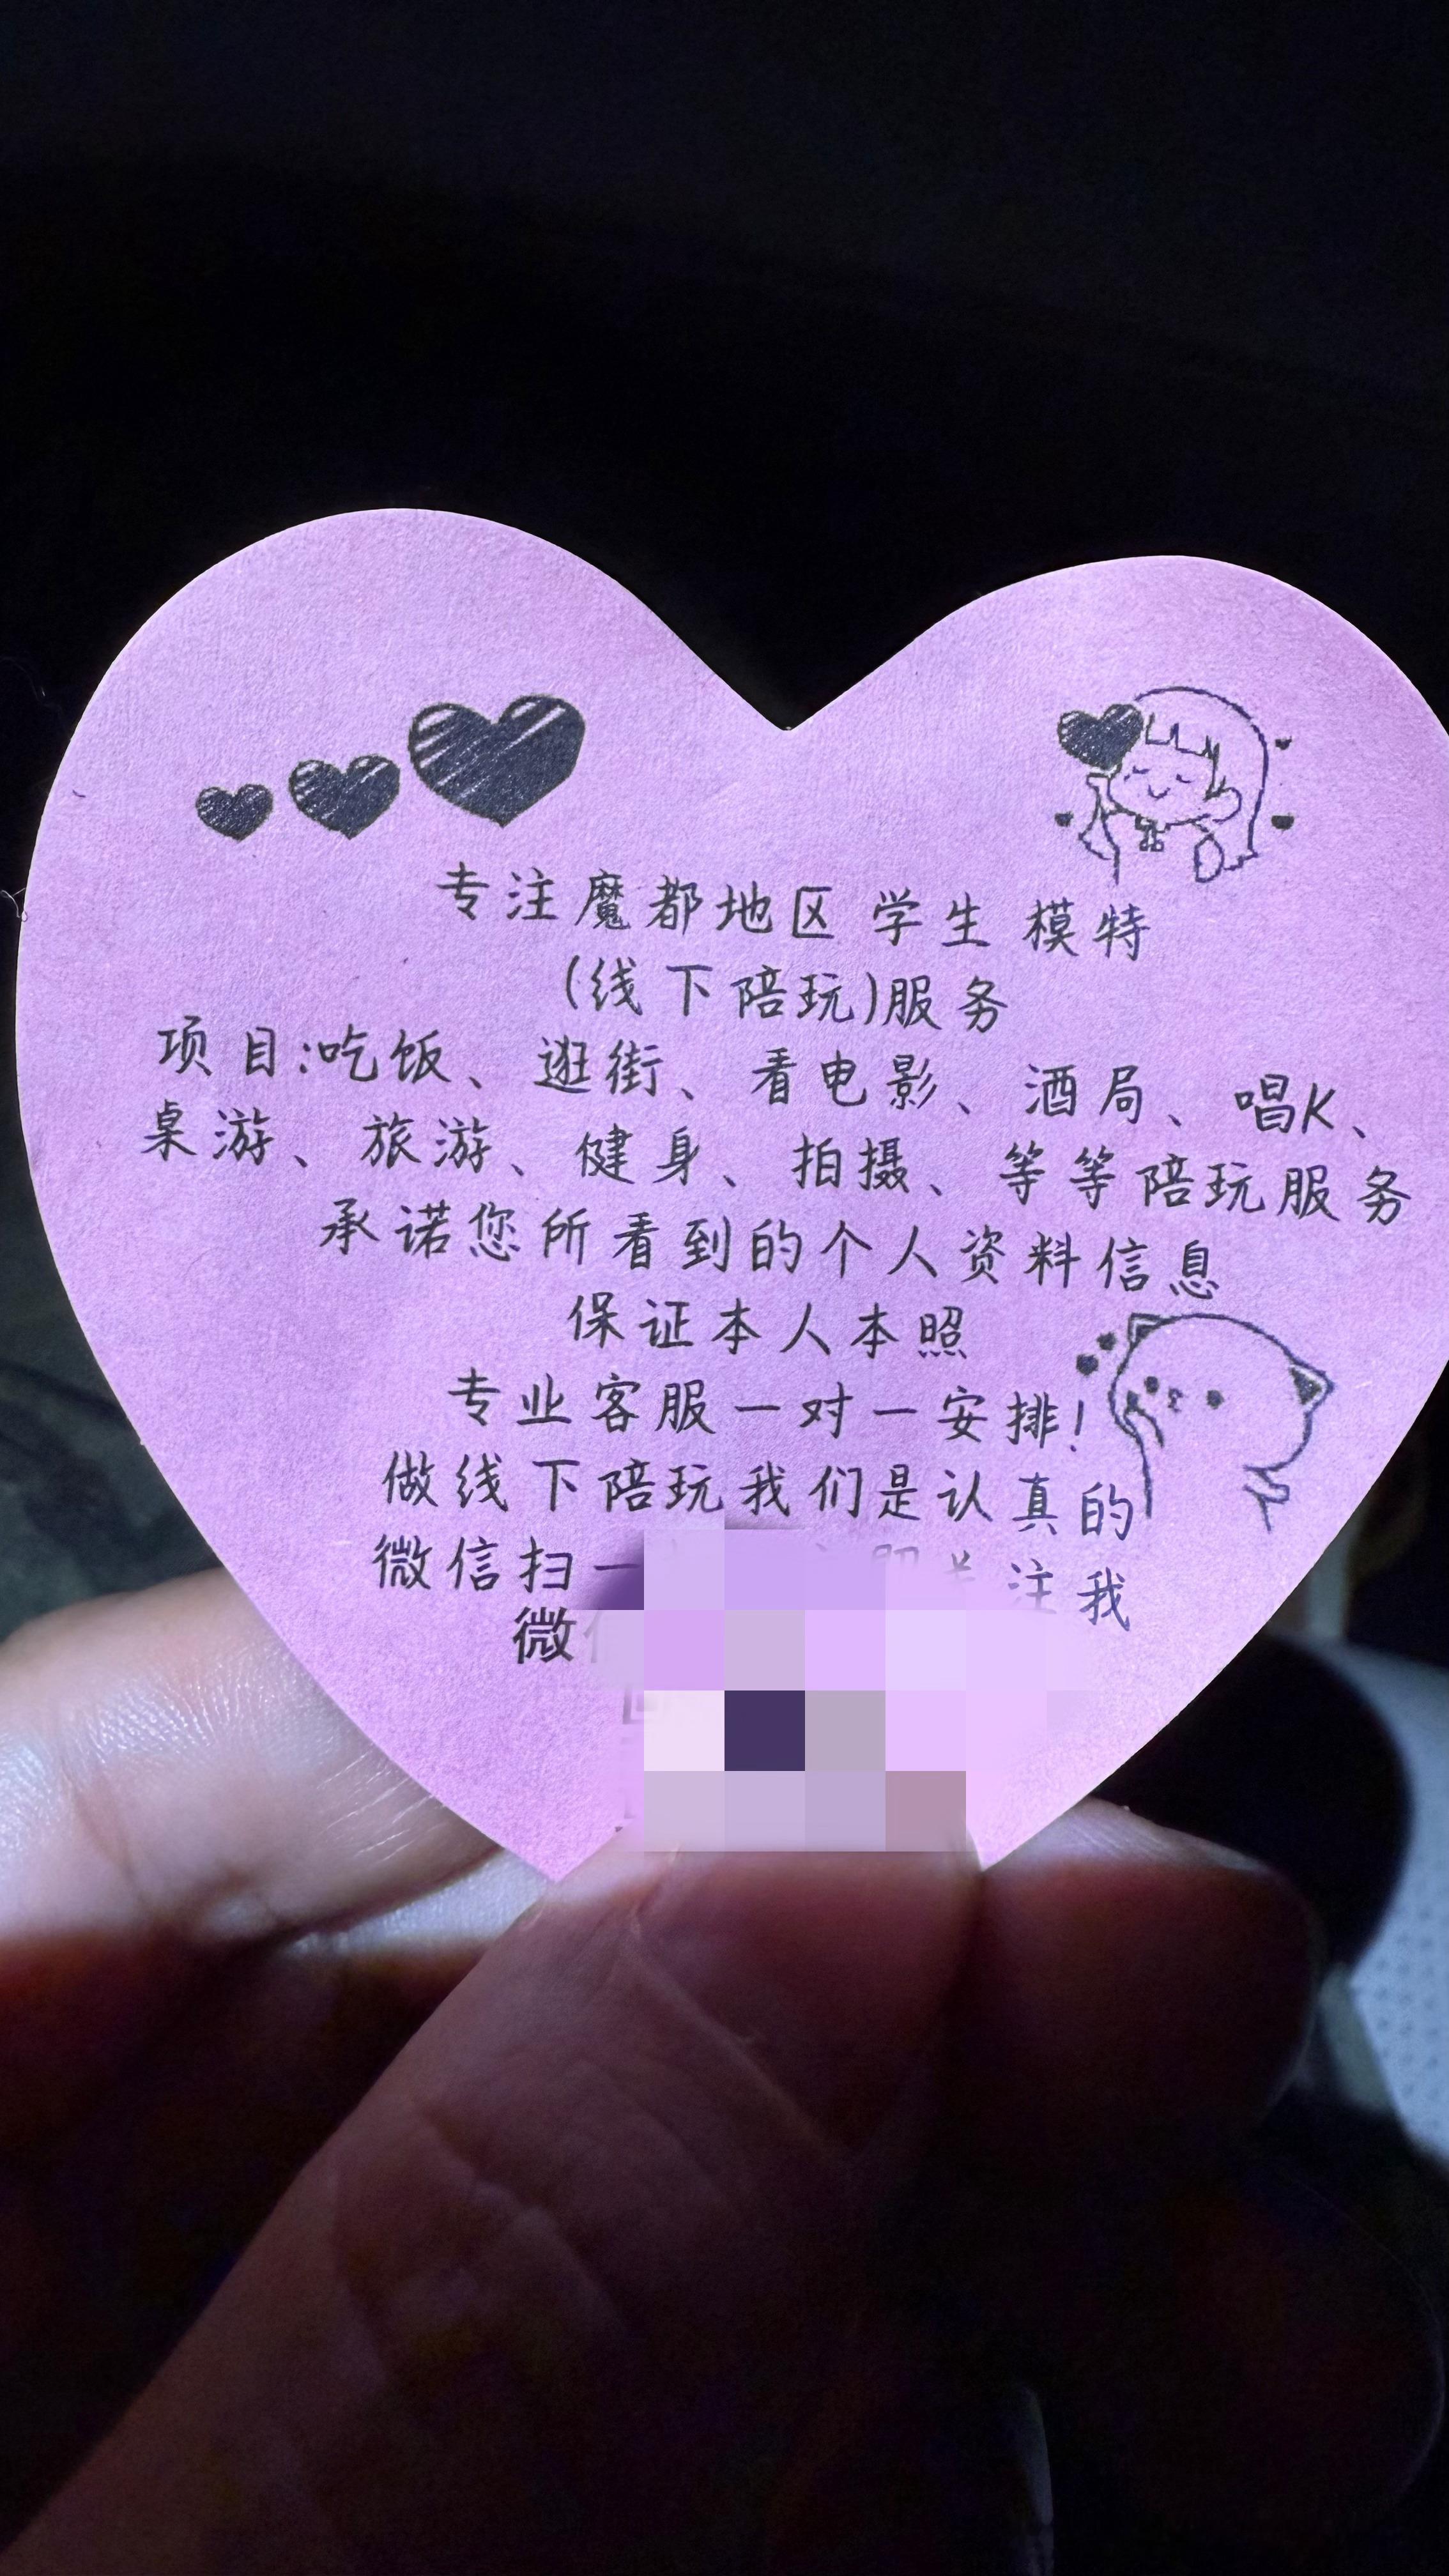 专注魔都地区 学生 模特
(线下陪玩)服务
项目:吃饭、逛街、看电影、酒局、唱K、
桌游、旅游、健身、拍摄、等等陪玩服务
承诺您所看到的个人资料信息
保证本人本照
专业客服一对一安排!
做线下陪玩我们是认真的
微信扫一 注我
微